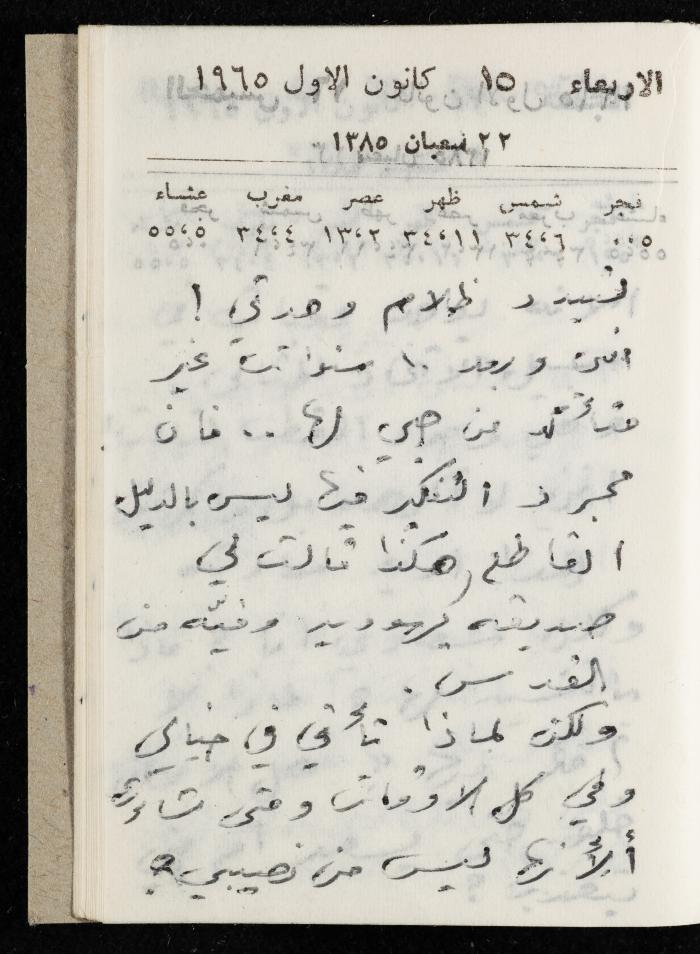 الاربعاء ١٥ كانون الاول ١٩٦٥
٢٢ شعبان ١٣٨٥
فجر شمس ظهر عصر مغرب عشاء
٥،٠٠ ٦،٣٤ ١١،٣٤ ٢،١٣ ٤،٣٤ ٥،٥٥
ظلام وحدتي !
انني وبعد ١٠ سنوات غير
متأكد من حبي لها .. فان
مجرد التفكير فيها ليس بالدليل
القاطع هكذا قالت لي
صديقه يهوديه وفيّه من
القدس .
ولكن لماذا تأتي في خيالي
وفي كل الاوقات ومتى شاءت
ألأنها ليس من نصيبي ؟